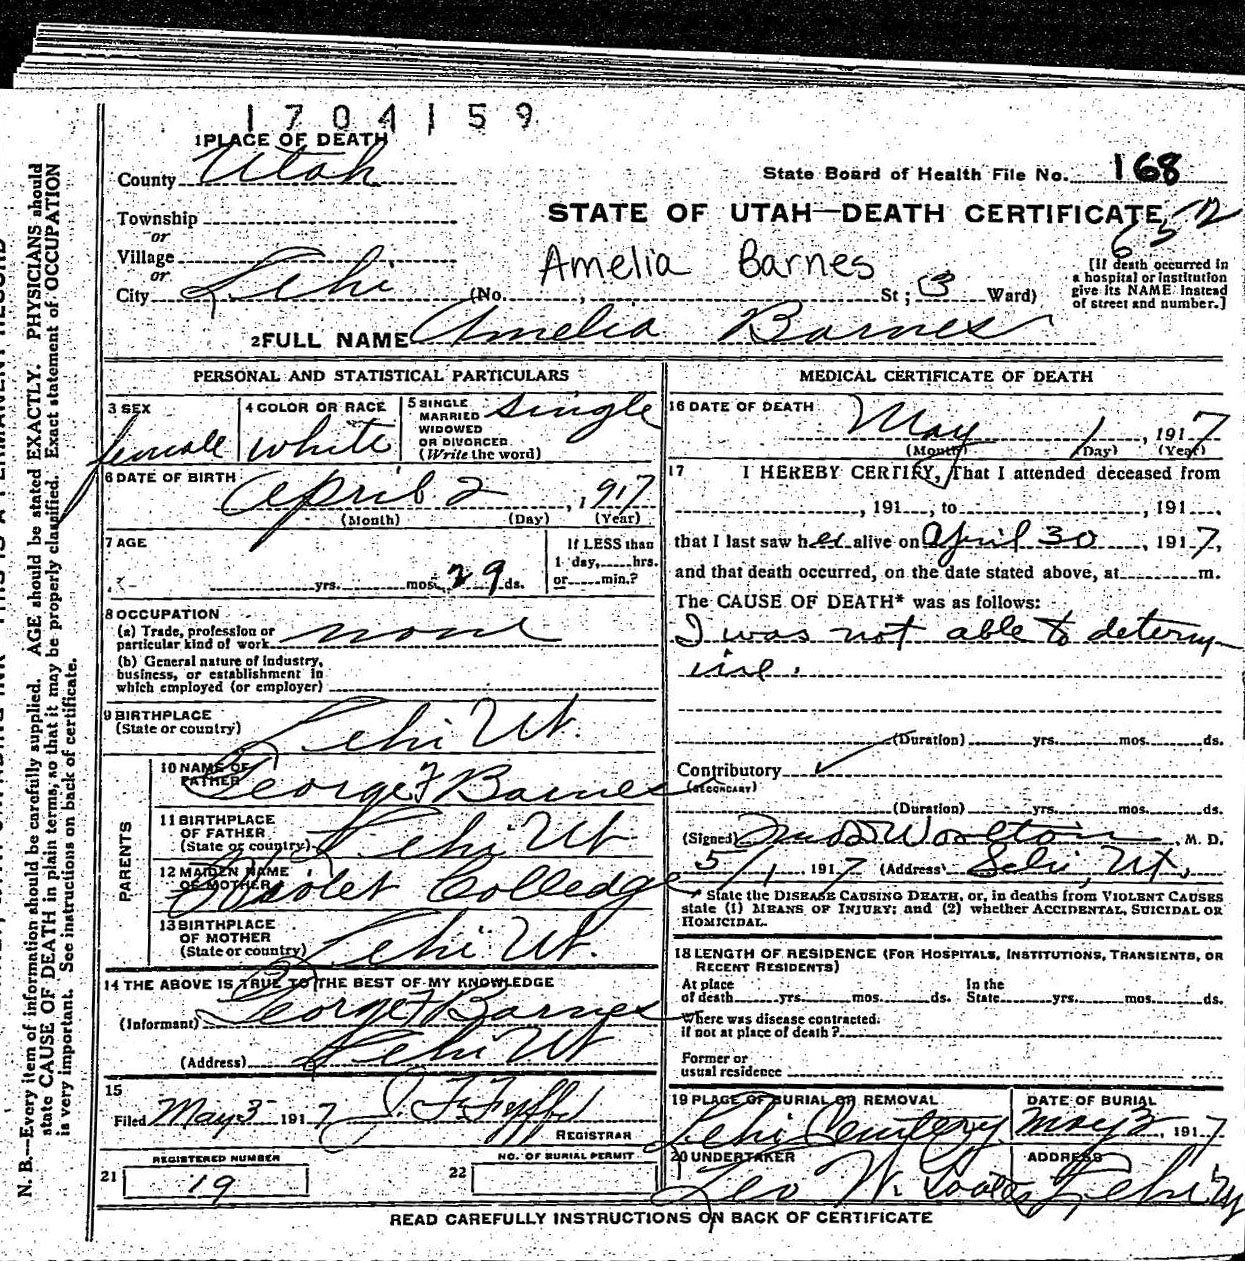 1704159
1 PLACE OF DEATH
County Utah
State Board of Health File No. 168
Township
or
STATE OF UTAH—DEATH CERTIFICATE
Village
or
Amelia Barnes
[If death occurred in
a hospital or institution
give its NAME instead
of street and number.]
City Lehi (No. , St; 3 Ward)
2 FULL NAME Amelia Barnes
PERSONAL AND STATISTICAL PARTICULARS
3 SEX
female
4 COLOR OR RACE
white
5 SINGLE
MARRIED
WIDOWED
OR DIVORCED
(Write the word)
single
6 DATE OF BIRTH
April 2, 1917
(Month) (Day) (Year)
7 AGE
yrs. mos. 29 ds.
If LESS than
1 day, hrs.
or min.?
8 OCCUPATION
(a) Trade, profession or
particular kind of work none
(b) General nature of industry,
business, or establishment in
which employed (or employer)
9 BIRTHPLACE
(State or country) Lehi Ut.
PARENTS
10 NAME OF
FATHER George F Barnes
11 BIRTHPLACE
OF FATHER
(State or country) Lehi Ut
12 MAIDEN NAME
OF MOTHER Violet Colledge
13 BIRTHPLACE
OF MOTHER
(State or country) Lehi Ut.
14 THE ABOVE IS TRUE TO THE BEST OF MY KNOWLEDGE
(Informant) George F Barnes
(Address) Lehi Ut
15
Filed May 3 1917
REGISTRAR
REGISTERED NUMBER
21 19
NO. OF BURIAL PERMIT
22
MEDICAL CERTIFICATE OF DEATH
16 DATE OF DEATH
May 1, 1917
(Month) (Day) (Year)
17 I HEREBY CERTIFY, That I attended deceased from
, 191 , to , 191 ,
that I last saw her alive on April 30, 1917,
and that death occurred, on the date stated above, at m.
The CAUSE OF DEATH* was as follows:
I was not able to determ
ine.
(Duration) yrs. mos. ds.
Contributory
(SECONDARY)
(Duration) yrs. mos. ds.
(Signed) M. D.
5/1, 1917 (Address) Lehi, Ut,
* State the DISEASE CAUSING DEATH, or, in deaths from VIOLENT CAUSES
state (1) MEANS OF INJURY; and (2) whether ACCIDENTAL, SUICIDAL OR
HOMICIDAL.
18 LENGTH OF RESIDENCE (FOR HOSPITALS, INSTITUTIONS, TRANSIENTS, OR
RECENT RESIDENTS)
At place
of death yrs. mos. ds.
In the
State yrs. mos. ds.
Where was disease contracted.
if not at place of death?
Former or
usual residence
19 PLACE OF BURIAL OR REMOVAL
Lehi Cemetery
DATE OF BURIAL
May 2, 1917
20 UNDERTAKER
Leo W.
ADDRESS
Lehi
READ CAREFULLY INSTRUCTIONS ON BACK OF CERTIFICATE
N. B.—Every item of information should be carefully supplied. AGE should be stated EXACTLY. PHYSICIANS should
state CAUSE OF DEATH in plain terms, so that it may be properly classified. Exact statement of OCCUPATION
is very important. See instructions on back of certificate.